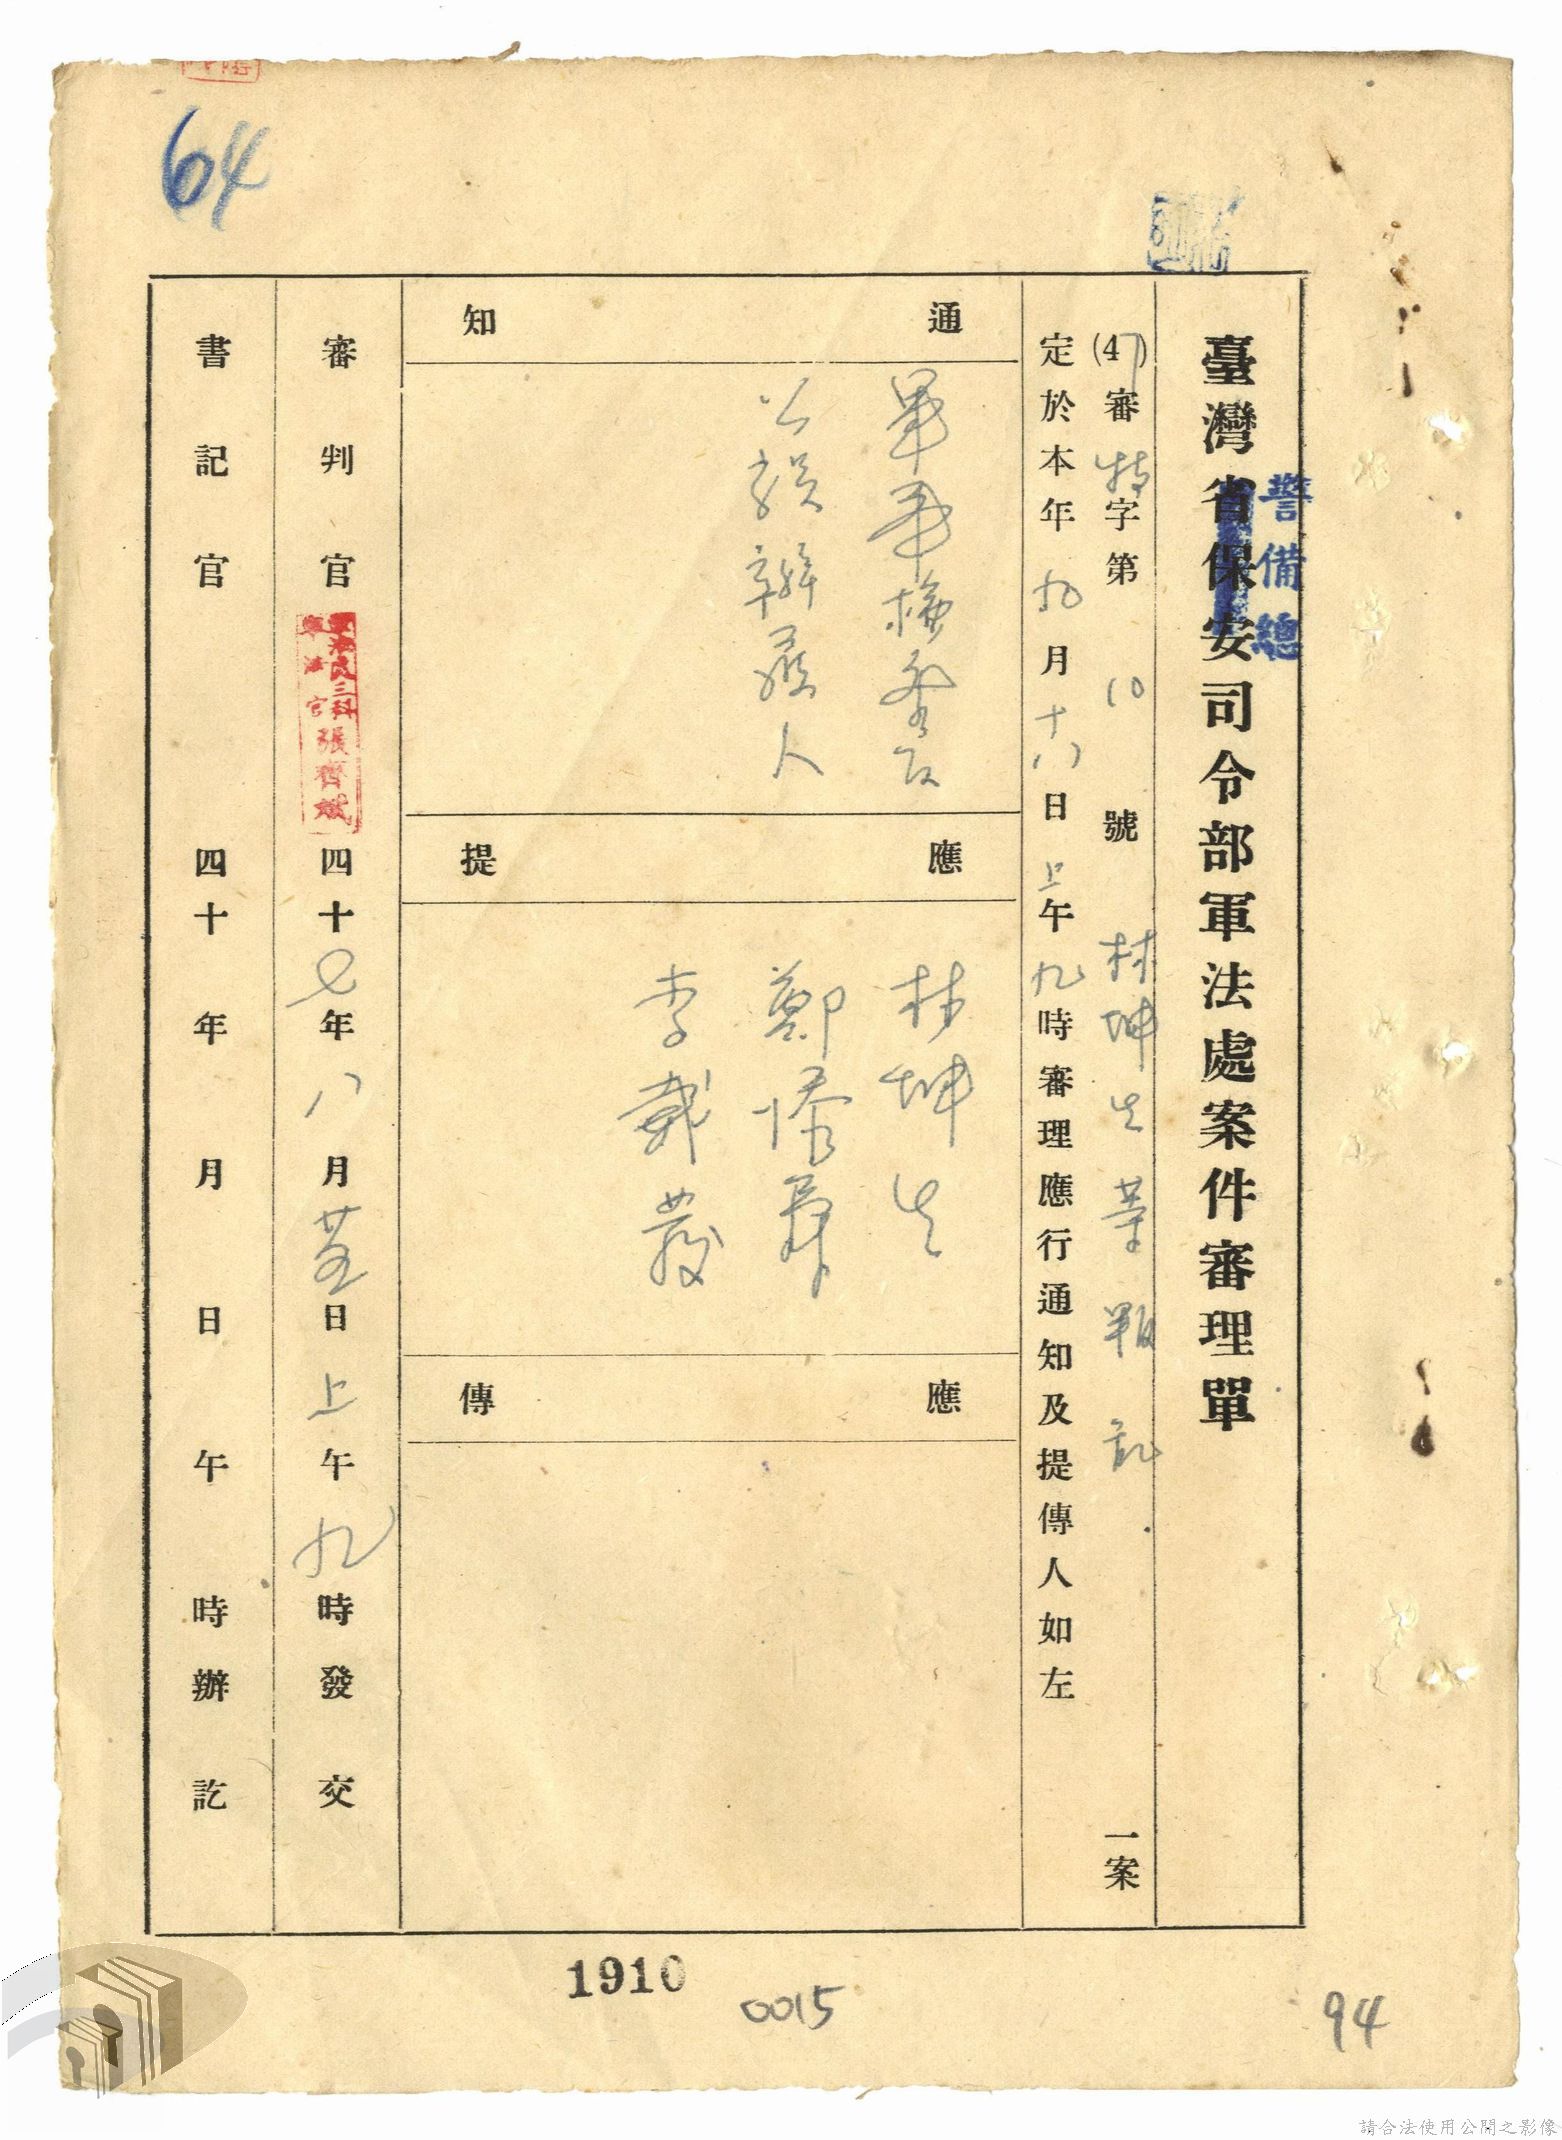 64
臺灣省保安司令部軍法處案件審理單
警備總
(47)審特字第10號 林坤生等叛亂 一案
定於本年九月十八日上午九時審理應行通知及提傳人如左
通知
軍事檢察官
公設辯護人
應提
林坤生
鄭添
李戴
應傳
審判官 四十七年八月廿五日上午九時發交
軍法官張
書記官 四十年月日午時辦訖
1910
0015
94
請合法使用公開之影像